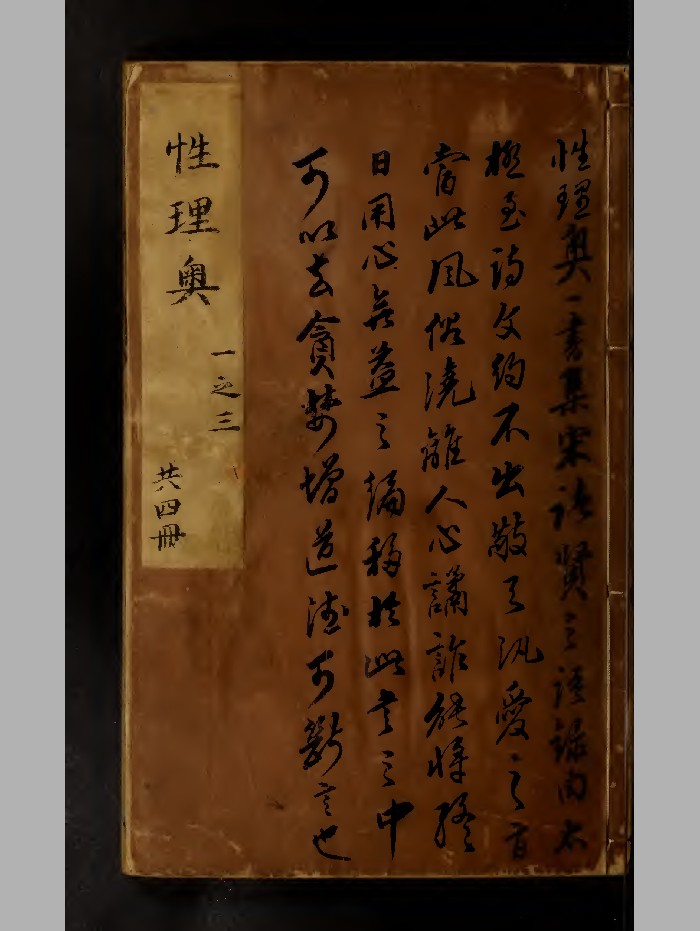 性理奧一書集宋諸賢之語錄內太
極至詩文約不出敬天汎愛之旨
當此風俗澆離人心譎詐能將終
日用心無益之編移於此書之中
可以去貪婪增道德可斷言也
性理奧
一之三
共四冊